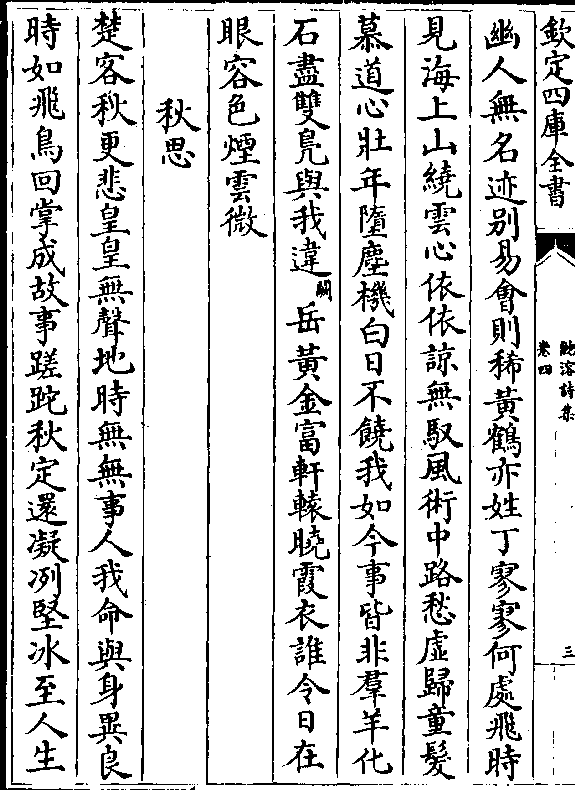 欽定四庫全書
鮑溶詩集
卷四
三
幽人無名迹别易會則稀黃鶴亦姓丁寥寥何處飛時
見海上山繞雲心依依諒無馭風術中路愁虛歸童髮
慕道心壯年墮塵機白日不饒我如今事皆非羣羊化
石盡雙鳧與我違闕岳黃金富軒轅曉霞衣誰令日在
眼容色煙雲微
秋思
楚客秋更悲皇皇無聲地時無無事人我命與身異良
時如飛鳥回掌成故事蹉跎秋定還凝冽堅冰至人生